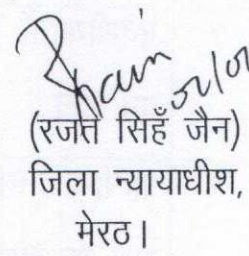 (रजत सिहँ जैन)
जिला न्यायाधीश,
मेरठ।